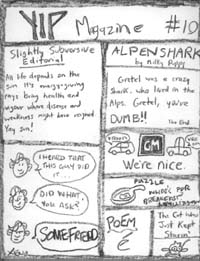 YIP Magazine #10
Slightly Subversive
Editorial
All life depends on the
sun. It's energy-giving
rays bring health and
vigour where disease and
weakness might have reigned.
Yay sun!
ALPENSHARK
by Milly Poppy
Gretel was a crazy
shark, who lived in the
Alps. Gretel, you're
DUMB!!
The End
I HEARD THAT
THIS GUY DID
IT...
DID WHAT
YOU ASK?
SOMEFRIEND
GM
We're nice.
PUZZLE
WHAT'S FOR
BREAKFAST
POEM
The Cat who
Just Kept
Starin'